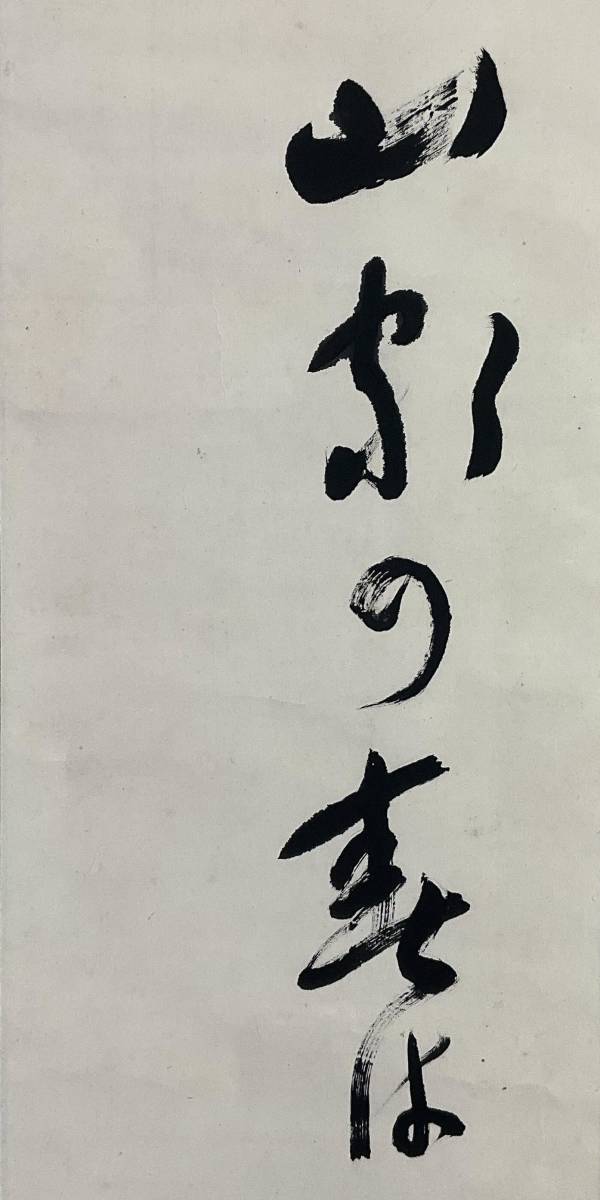 山家の春は